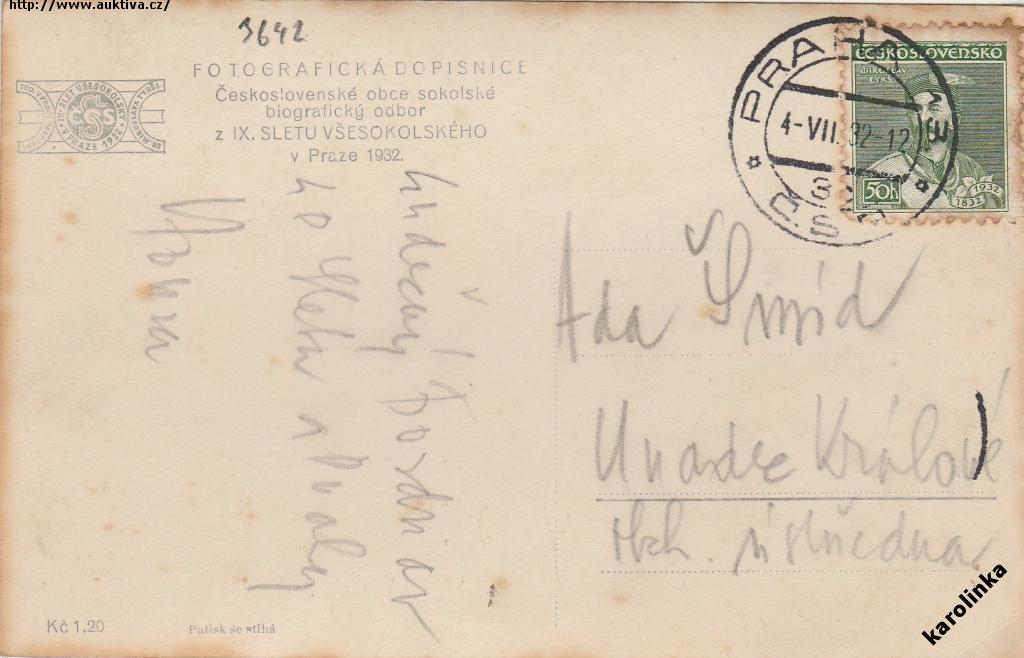 http://www.auktiva.cz/
3642
FOTOGRAFICKÁ DOPISNICE
Československé obce sokolské
biografický odbor
z IX. SLETU VŠESOKOLSKÉHO
v Praze 1932.
IX. SLET VŠESOKOLSKÝ
V PRAZE 1932
ČOS
DR. MIROSLAVA TYRŠE
PRAHA
4-VII.32-12
Č.S.P.
ČESKOSLOVENSKO
MIROSLAV
TYRŠ
50h
1932
1832
Srdečný pozdrav
Ada Šmíd
Hradec Králové
obch. ústředna
Kč 1.20
Patisk se stíhá
karolinka